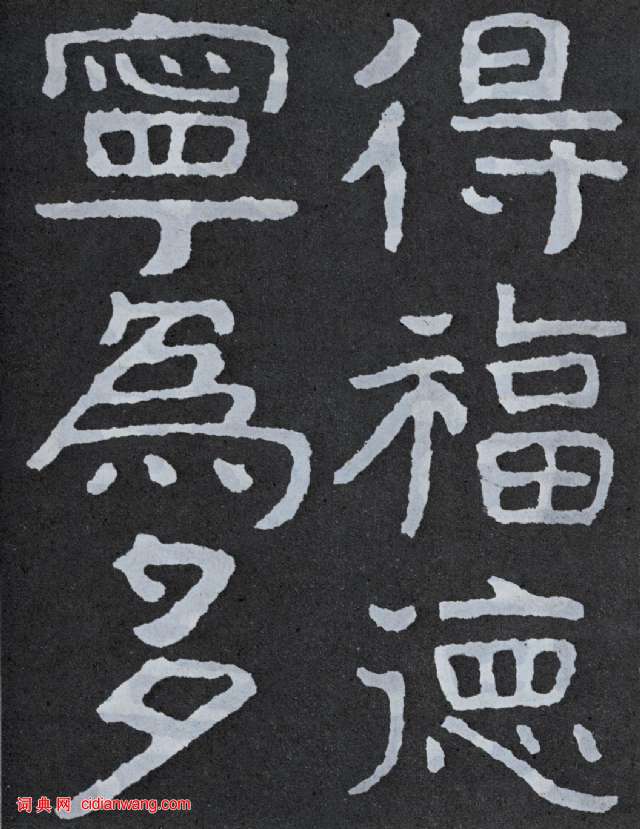 得福德
寧為多
词典网 cidianwang.com